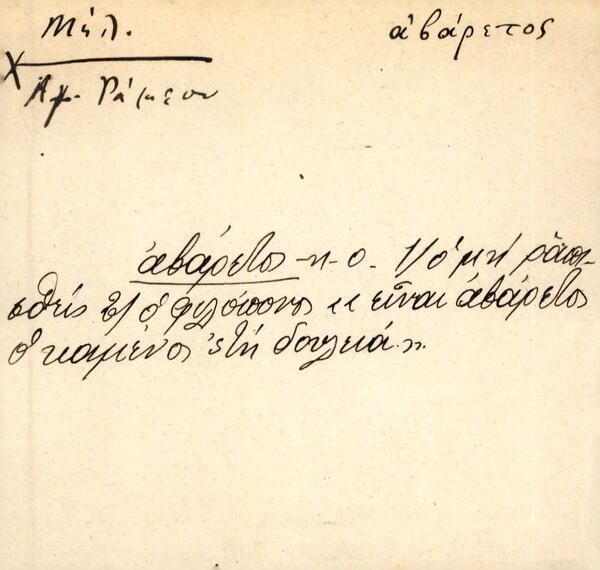 Μήλ.
ἀβάρετος
Ἁγ.
ἀβάρετος -η -ο. 1/ ὁ μὴ
σθείς 2/ ὁ φιλόπονος «εἶναι ἀβάρετος
ὁ καμένος 'ςτὴ δουλειά».